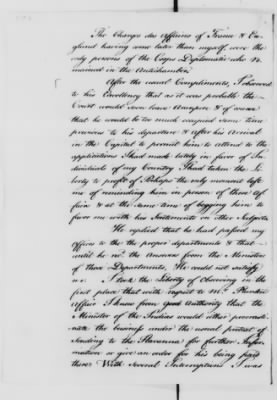 The Charges des Affaires of France & En-
gland having come later than myself, were the
only persons of the Corps Diplomatic who re-
mained in the Antichamber.
After the usual Compliments, I observed
to his Excellency that as it was probable the
Court would soon leave Aranjuez & if so were
that he would be too much occupied some time
previous to his departure & after his arrival
in the Capital to permit him to attend to the
applications I had made lately in favor of In-
dividuals of my Country I had taken the Li-
berty to profit of Perhaps the only moment left
me of reminding him in person of those Af-
fairs & at the same time of begging him to
favor me with his Sentiments on other Subjects
He replied that he had passed my
Offices to the the proper departments & that
until he had the Answers from the Ministers
of those Departments, He could not satisfy
me. I took the Liberty of observing in the
first place that with respect to Mr.
Affair I knew from good Authority that the
Minister of the Indias would either procrasti-
nate the business under the usual pretext of
sending to the Havanna for further Infor-
mation or give an order for his being paid
there With Several Interruptions I was